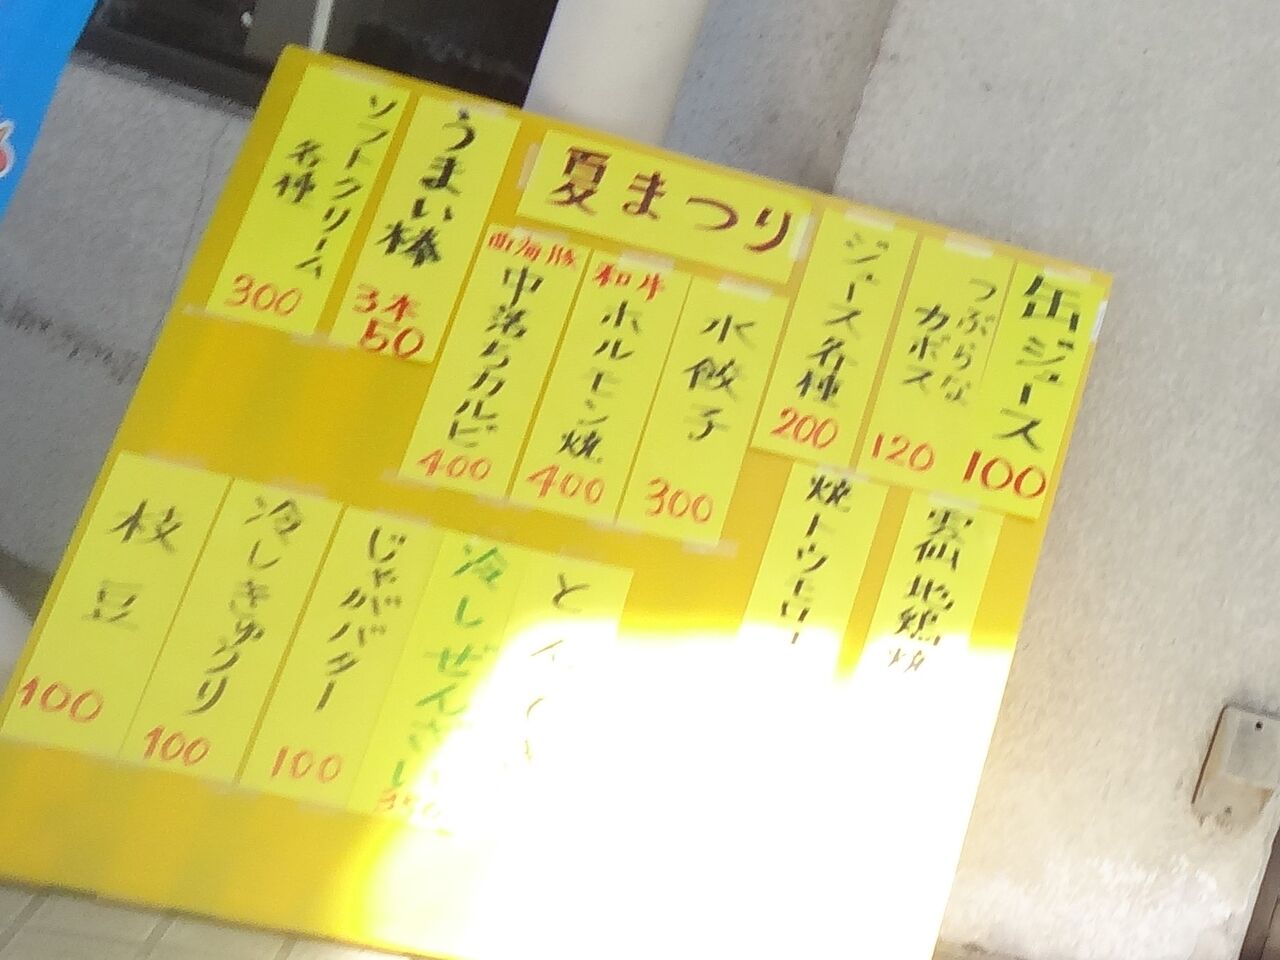 夏まつり
缶ジュース
100
つぶらな
カボス
120
ジュース各種
200
水餃子
300
和牛
ホルモン焼
400
中落ちカルビ
400
うまい棒
3本
50
ソフトクリーム
各種
300
雲仙地鶏焼
焼トウモロ
冷しぜんざい
350
じゃがバター
100
冷しきゅうり
100
枝豆
100